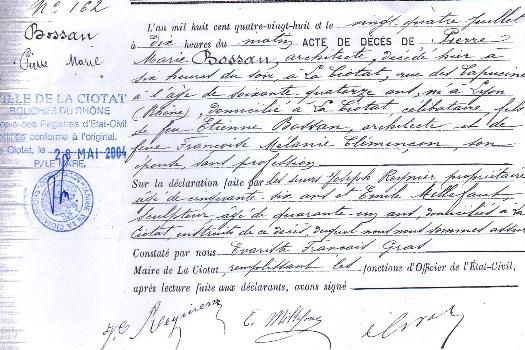 N° 162
Bossan
Pierre Marie
VILLE DE LA CIOTAT
BOUCHES DU RHÔNE
des Registres d'Etat-Civil
conforme à l'original.
Ciotat, le 28 MAI 2004
P/LE MAIRE,
L'an mil huit cent quatre-vingt-huit et le vingt quatre juillet
à dix heures du matin ACTE DE DÉCÈS DE Pierre
Marie Bossan, architecte, décédé hier à
six heures du soir, à La Ciotat, rue des Capucins
à l'âge de soixante quatorze ans, né à Lyon
(Rhône) domicilié à La Ciotat célibataire fils
de feu Etienne Bossan, architecte et de
feue Françoise Mélanie Clémençon son
épouse sans profession
Sur la déclaration faite par les sieurs Joseph propriétaire
âgé de cinquante six ans et Emile Millefaut
sculpteur, âgé de quarante un ans, domiciliés à La
Ciotat instruits de ce décès, duquel nous nous sommes assuré
Constaté par nous Evariste François Gras
Maire de La Ciotat, remplissant les fonctions d'Officier de l'État-Civil,
après lecture faite aux déclarants, avons signé
E. Millefaut